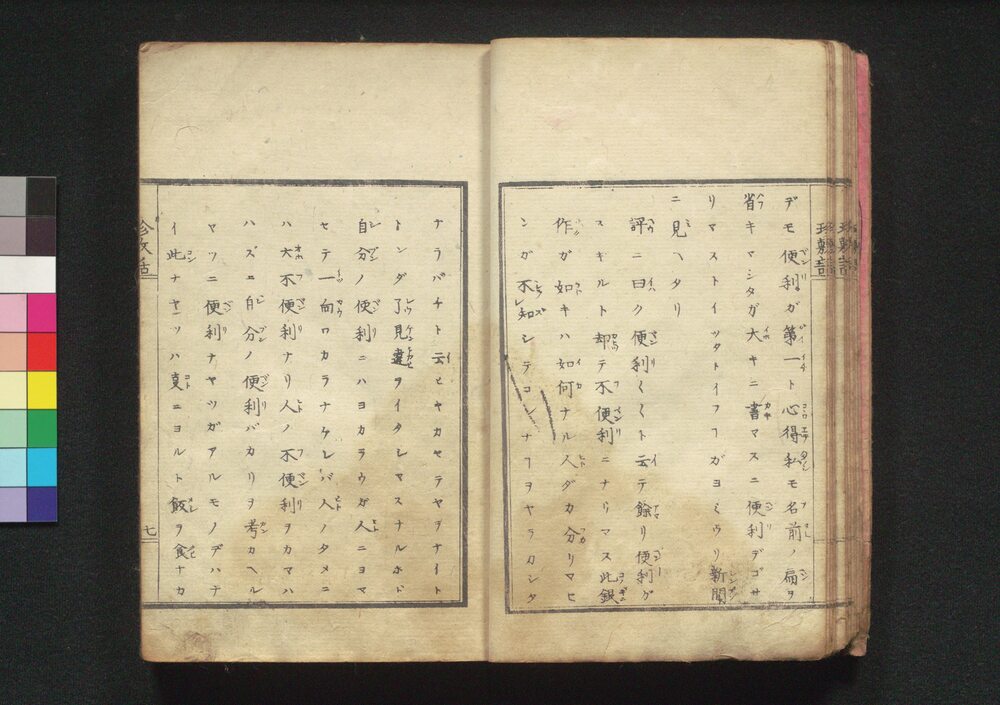 デモ便利ガ第一ト心得私モ名前ノ扁ヲ
省キマシタガ大キニ書マスニ便利デゴサ
リマストイツタトイフフガヨミウリ新聞
ニ見ヘタリ
評ニ曰ク便利〱〱ト云テ餘リ便利ガ
スギルト却テ不便利ニナリマス此銀
作ガ如キハ如何ナル人ダカ分リマセ
ンガ不知シテコンナフヲヤラカシタ
ナラバチト云ヒヤカヤテヤラナイト
トンダ了見違ヲイタシマスナルホド
自分ノ便利ニハヨカラウガ人ニヨマ
セテ一向ワカラナケレバ人ノタメニ
ハ大不便利ナリ人ノ不便利ヲカマハ
ハズニ自分ノ便利バカリヲ考カヘル
ヤツニ便利ナヤツガアルモノデハナ
イ此ナヤツハ真ニヨルト飯ヲ食ナカ
珍文話
七